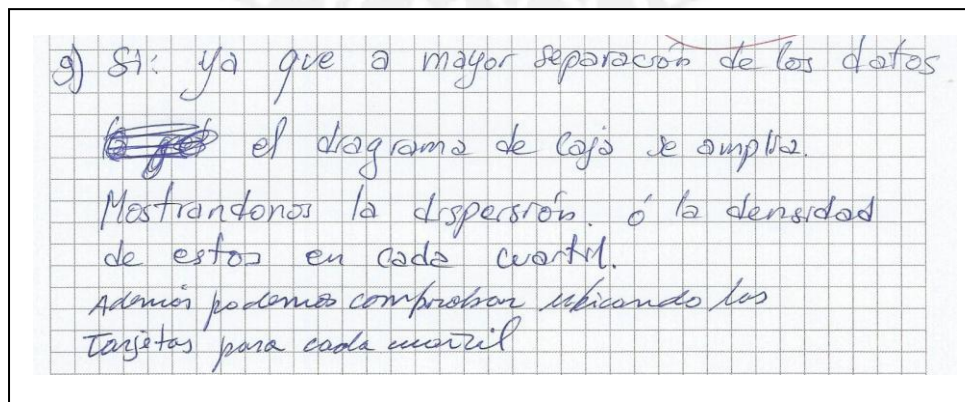 g) Si: ya que a mayor separación de los datos
el diagrama de caja se amplia.
Mostrandonos la dispersión. ó la densidad
de estos en cada cuartil.
Ademós podemos comprobar ubicando las
Tarjetas para cada cuartil